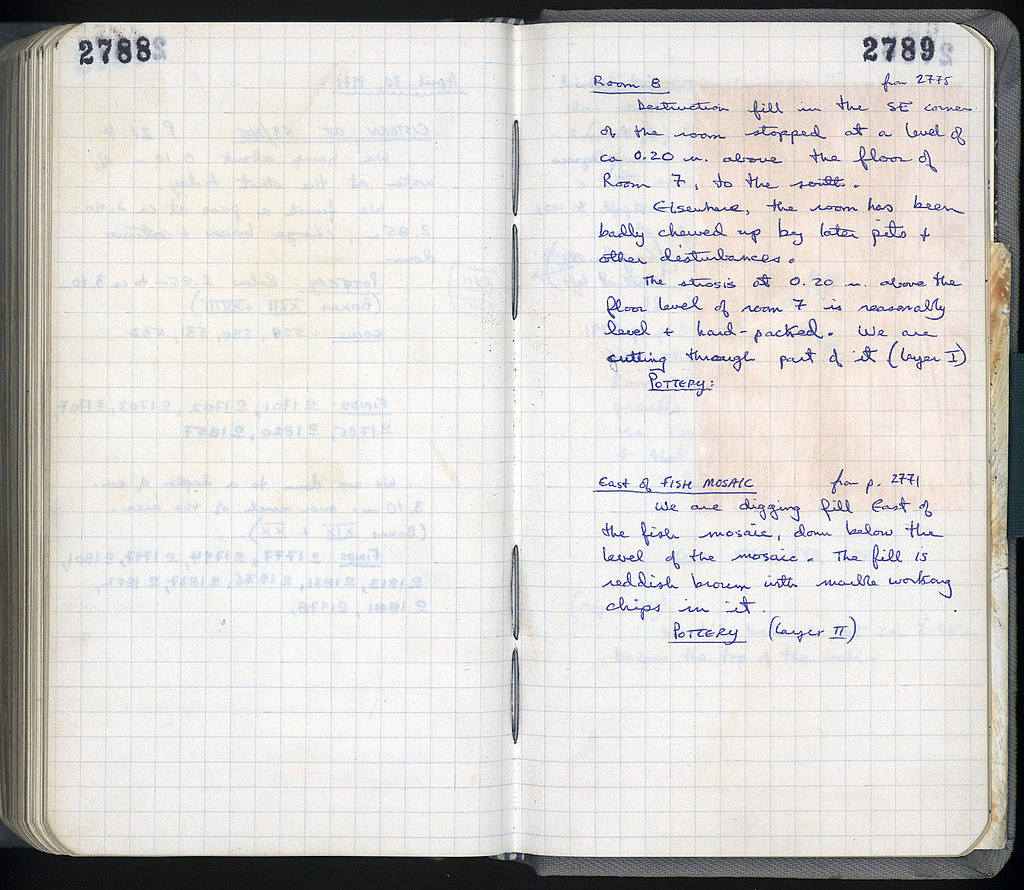 2788
2789
Room 8
from 2775
Destruction fill in the SE corner
of the room stopped at a level of
ca 0.20 m. above the floor of
Room 7, to the south.
Elsewhere, the room has been
badly chewed up by later pits +
other disturbances.
The strosis at 0.20 m. above the
floor level of room 7 is reasonably
level + hard-packed. We are
cutting through part of it (layer I)
POTTERY:
East of FISH MOSAIC
from p. 2771
We are digging fill East of
the fish mosaic, down below the
level of the mosaic. The fill is
reddish brown with marble working
chips in it.
POTTERY (layer II)